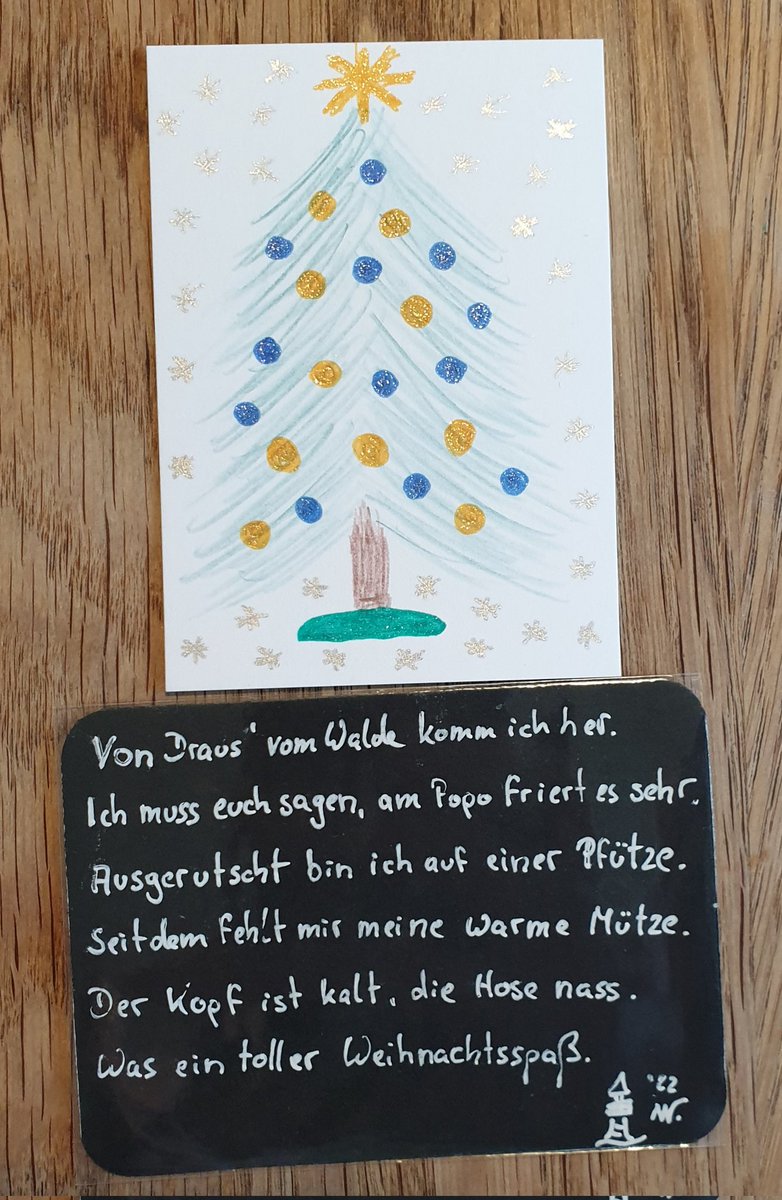 Von Draus' vom Walde komm ich her.
Ich muss euch sagen, am Popo friert es sehr.
Ausgerutscht bin ich auf einer Pfütze.
Seitdem fehlt mir meine warme Mütze.
Der Kopf ist kalt, die Hose nass.
Was ein toller Weihnachtsspaß.
'22